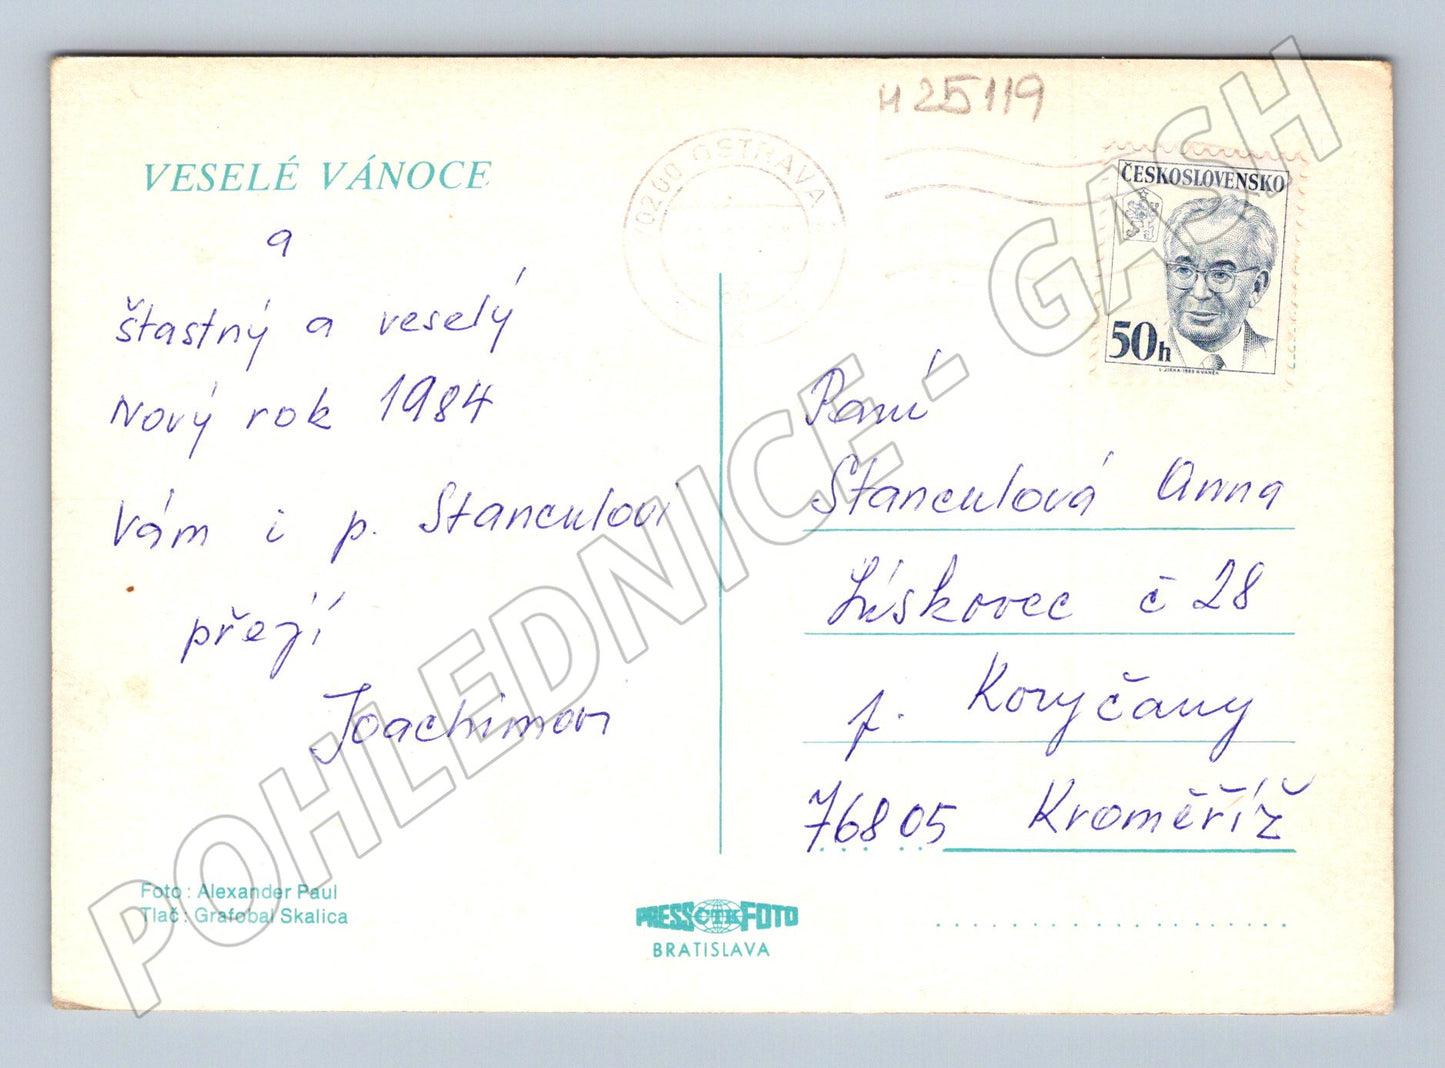 H 25119
VESELÉ VÁNOCE
a
štastný a veselý
Nový rok 1984
Vám i p. Stanculovi
přejí
Joachimovi
70200 OSTRAVA
ČESKOSLOVENSKO
50h
Paní
Stanculová Anna
Lískovec č 28
p. Koryčany
76805 Kroměříž
Foto: Alexander Paul
Tlač: Grafobal Skalica
PRESSFOTO
BRATISLAVA
POHLEDNICE - GASH